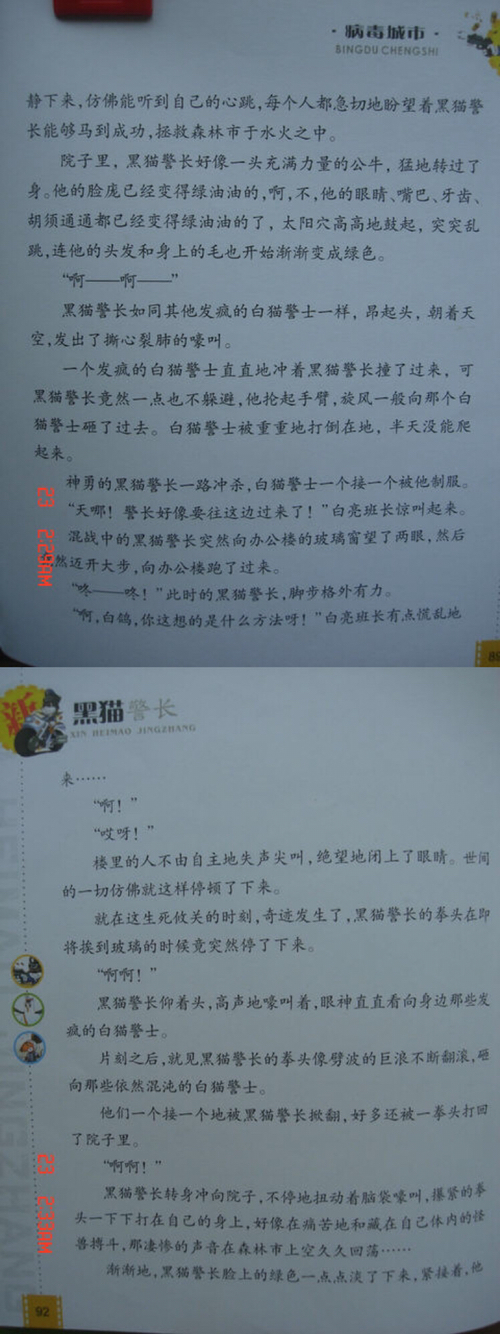 ·病毒城市·
BINGDU CHENGSHI
静下来,仿佛能听到自己的心跳,每个人都急切地盼望着黑猫警
长能够马到成功,拯救森林市于水火之中。
院子里,黑猫警长好像一头充满力量的公牛,猛地转过了
身。他的脸庞已经变得绿油油的,啊,不,他的眼睛、嘴巴、牙齿、
胡须通通都已经变得绿油油的了,太阳穴高高地鼓起,突突乱
跳,连他的头发和身上的毛也开始渐渐变成绿色。
“啊——啊——”
黑猫警长如同其他发疯的白猫警士一样,昂起头,朝着天
空,发出了撕心裂肺的嚎叫。
一个发疯的白猫警士直直地冲着黑猫警长撞了过来,可
黑猫警长竟然一点也不躲避,他抡起手臂,旋风一般向那个白
猫警士砸了过去。白猫警士被重重地打倒在地,半天没能爬
起来。
神勇的黑猫警长一路冲杀,白猫警士一个接一个被他制服。
“天哪!警长好像要往这边过来了!”白亮班长惊叫起来。
混战中的黑猫警长突然向办公楼的玻璃窗望了两眼,然后
然迈开大步,向办公楼跑了过来。
“咚——咚!”此时的黑猫警长,脚步格外有力。
“啊,白鸽,你这想的是什么方法呀!”白亮班长有点慌乱地
23 2:29AM
新
黑猫警长
XIN HEIMAO JINGZHANG
来……
“啊!”
“哎呀!”
楼里的人不由自主地失声尖叫,绝望地闭上了眼睛。世间
的一切仿佛就这样停顿了下来。
就在这生死攸关的时刻,奇迹发生了,黑猫警长的拳头在即
将挨到玻璃的时候竟突然停了下来。
“啊啊!”
黑猫警长仰着头,高声地嚎叫着,眼神直直看向身边那些发
疯的白猫警士。
片刻之后,就见黑猫警长的拳头像劈波的巨浪不断翻滚,砸
向那些依然混沌的白猫警士。
他们一个接一个地被黑猫警长掀翻,好多还被一拳头打回
了院子里。
“啊啊!”
黑猫警长转身冲向院子,不停地扭动着脑袋嚎叫,攥紧的拳
头一下下打在自己的身上,好像在痛苦地和藏在自己体内的怪
兽搏斗,那凄惨的声音在森林市上空久久回荡……
渐渐地,黑猫警长脸上的绿色一点点淡了下来,紧接着,他
23 2:33AM
92